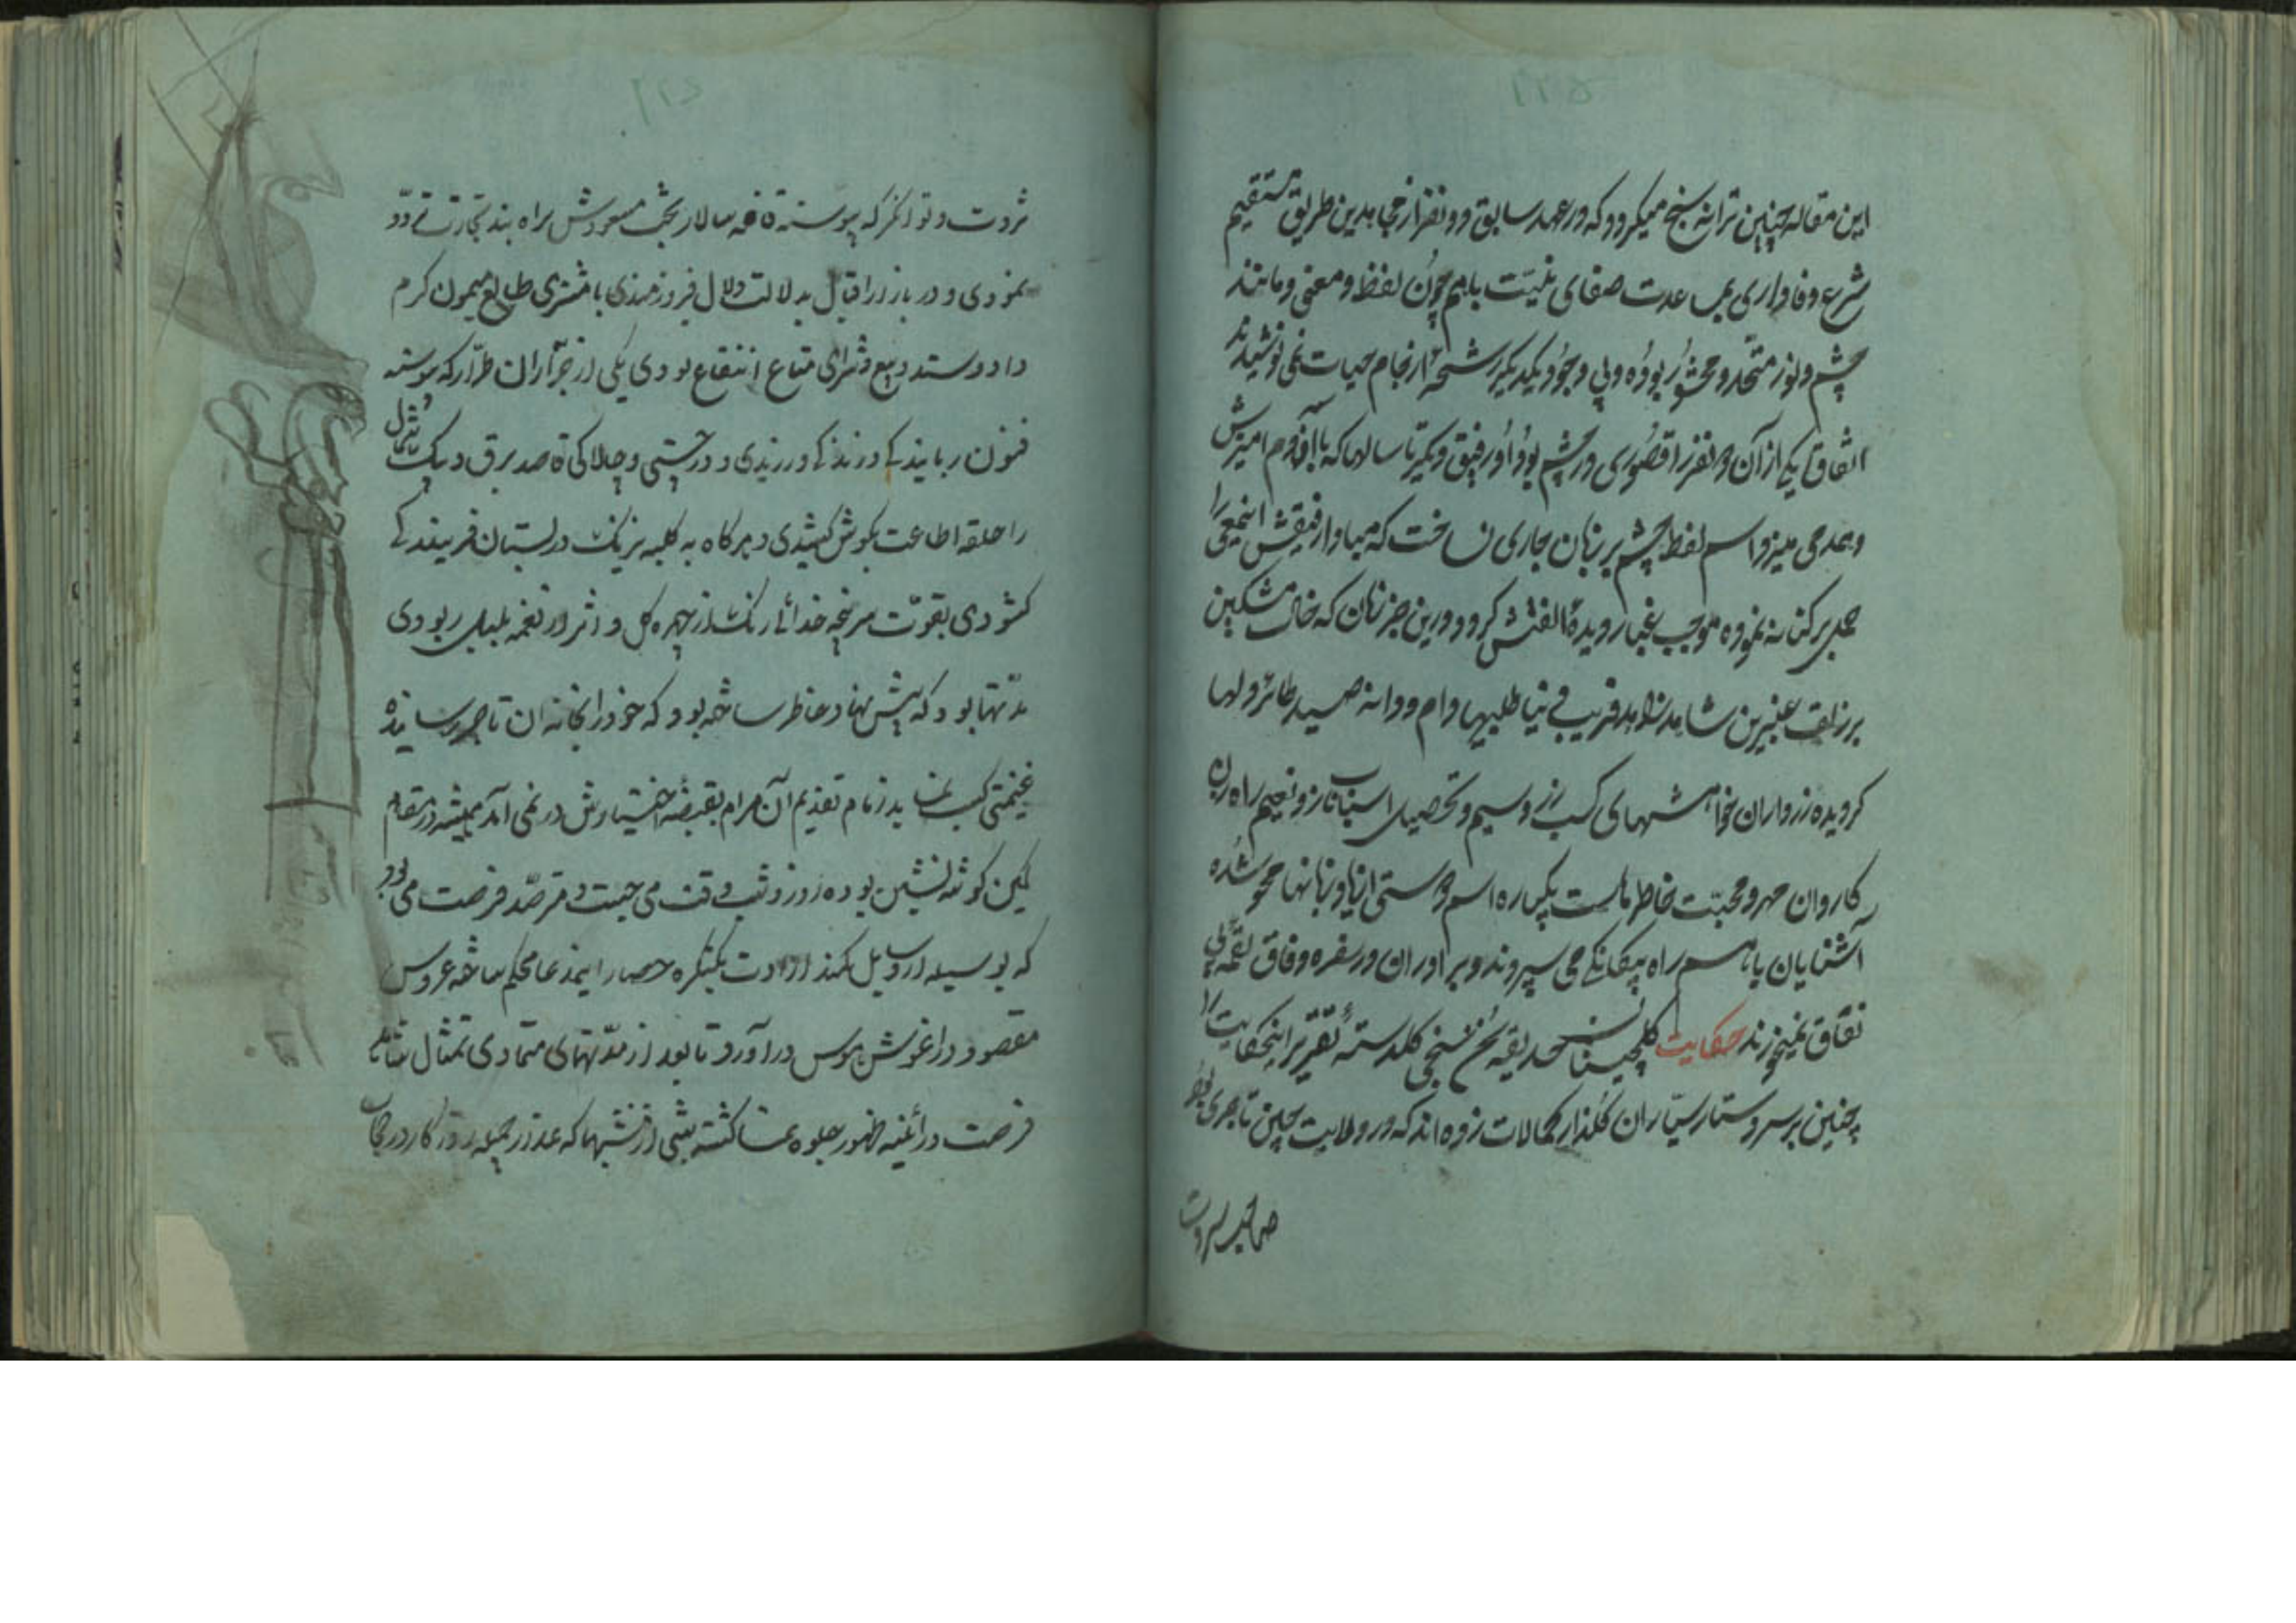 این مقاله چنین ترانه سنج میکردد که در عهد سابق دو نفر از مجاهدین طریق مستقیم
شرع وفاداری بمساعدت صفای نیت باهم چون لفظ و معنی و مانند
چشم و نور متحد و محشور بوده و بی وجود یکدیکر رشحه از جام حیات نمی نوشیدند
اتفاق یکی از آن دو نفر را قصوری در چشم بود او رفیق دیکر تا سالها که با او دم آمیزش
و همدمی میزد اسم لفظ چشم بر زبان جاری نساخت که مبادا رفیقش اینمعنی را
حمل بر کنایه نموده موجب غبار دیده الفتش کردد درین جز زمان که خال مشکین
بر زلف عنبرین شاهد زاهد فریب دنیا طلبیها دام و دانه صید طائر دلها
کردیده زرداران خواهشهای کسب زر و سیم و تحصیل اسباب ناز و نعیم راه زن
کاروان مهر و محبت خاطرهاست یکباره اسم دوستی از یاد و زبانها محو شده
آشنایان باهم راه بیکانکی می سپرند و برادران در سفره وفاق لقمه بی
نفاق نمیخورند حکایت کلچینان حدیقه سخن سنجی کلدسته تقریر اینحکایت را
چنین بر سر دستار سیاران کلذار کمالات زده اند که در ولایت چین تاجری بود
صاحب ثروت
ثروت و توانکر که پیوسته قافله سالار بخت مسعودش براه بند تجارت تردد
نمودی و در بازار اقبال بدلالت دلال فیروزمندی با مشتری طالع میمون کرم
داد و ستد و بیع و شرای متاع انتفاع بودی یکی از جراران طرار که پیوسته
فنون ربایندکی و زندکی و رندی و در چستی و چالاکی قاصد برق و پیک شمال
را حلقه اطاعت بکوش کشیدی و هرکاه به کلبه نیرنک در بستان فریبندکی
کشودی بقوت سرپنجه خدائی رنک از چهره کل و اثر از نغمه بلبل ربودی
مدتها بود که پیش نهاد خاطر ساخته بود که خود را بخانه ان تاجر رسانیده
غنیمتی کسب نماید زمام تقدیم آن مرام بقبضه اختیارش در نمی آمد همیشه در مقام
کمین کوشه نشین بوده روز و شب وقت می جست و مترصد فرصت می بود
که بوسیله از وسایل کمند ارادت بکنکره حصار ایمدعا محکم ساخته عروس
مقصود در اغوش هوس در آورد تا بعد از مدتهای متمادی تمثال مثال
فرصت در ائینه ظهور جلوه نما کشته شبی از شبها که عذار جمیله روزکار در حجاب